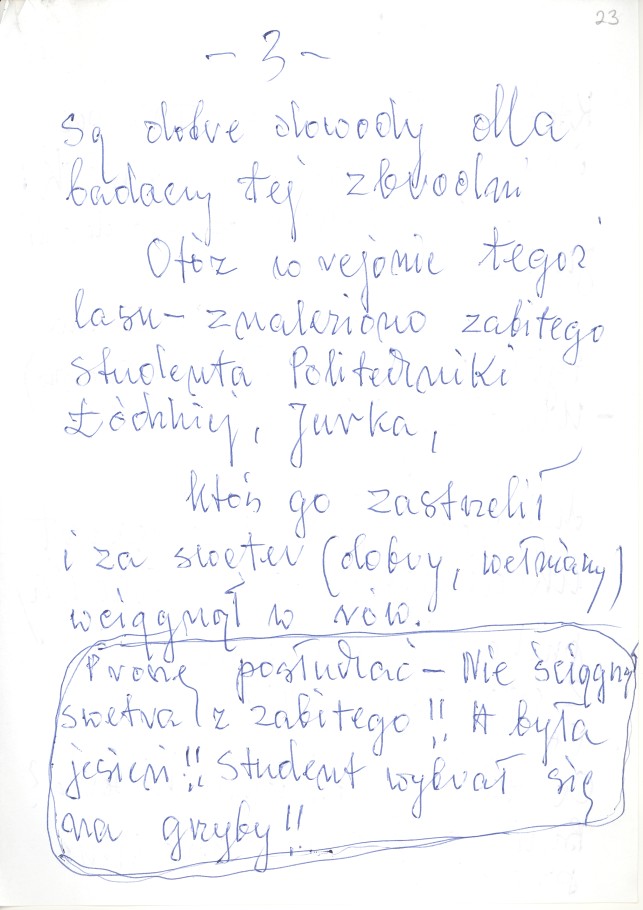 23
- 3 -
Są dobre dowody dla
badaczy tej zbrodni
Otóż w rejonie tegoż
lasu - znaleziono zabitego
studenta Politechniki
Łódzkiej, Jurka,
ktoś go zastrzelił
i za sweter (dobry, wełniany)
wciągnął w rów.
Proszę posłuchać - Nie ściągnął
swetra z zabitego!! A była
jesień!! Student wybrał się
na grzyby!!...